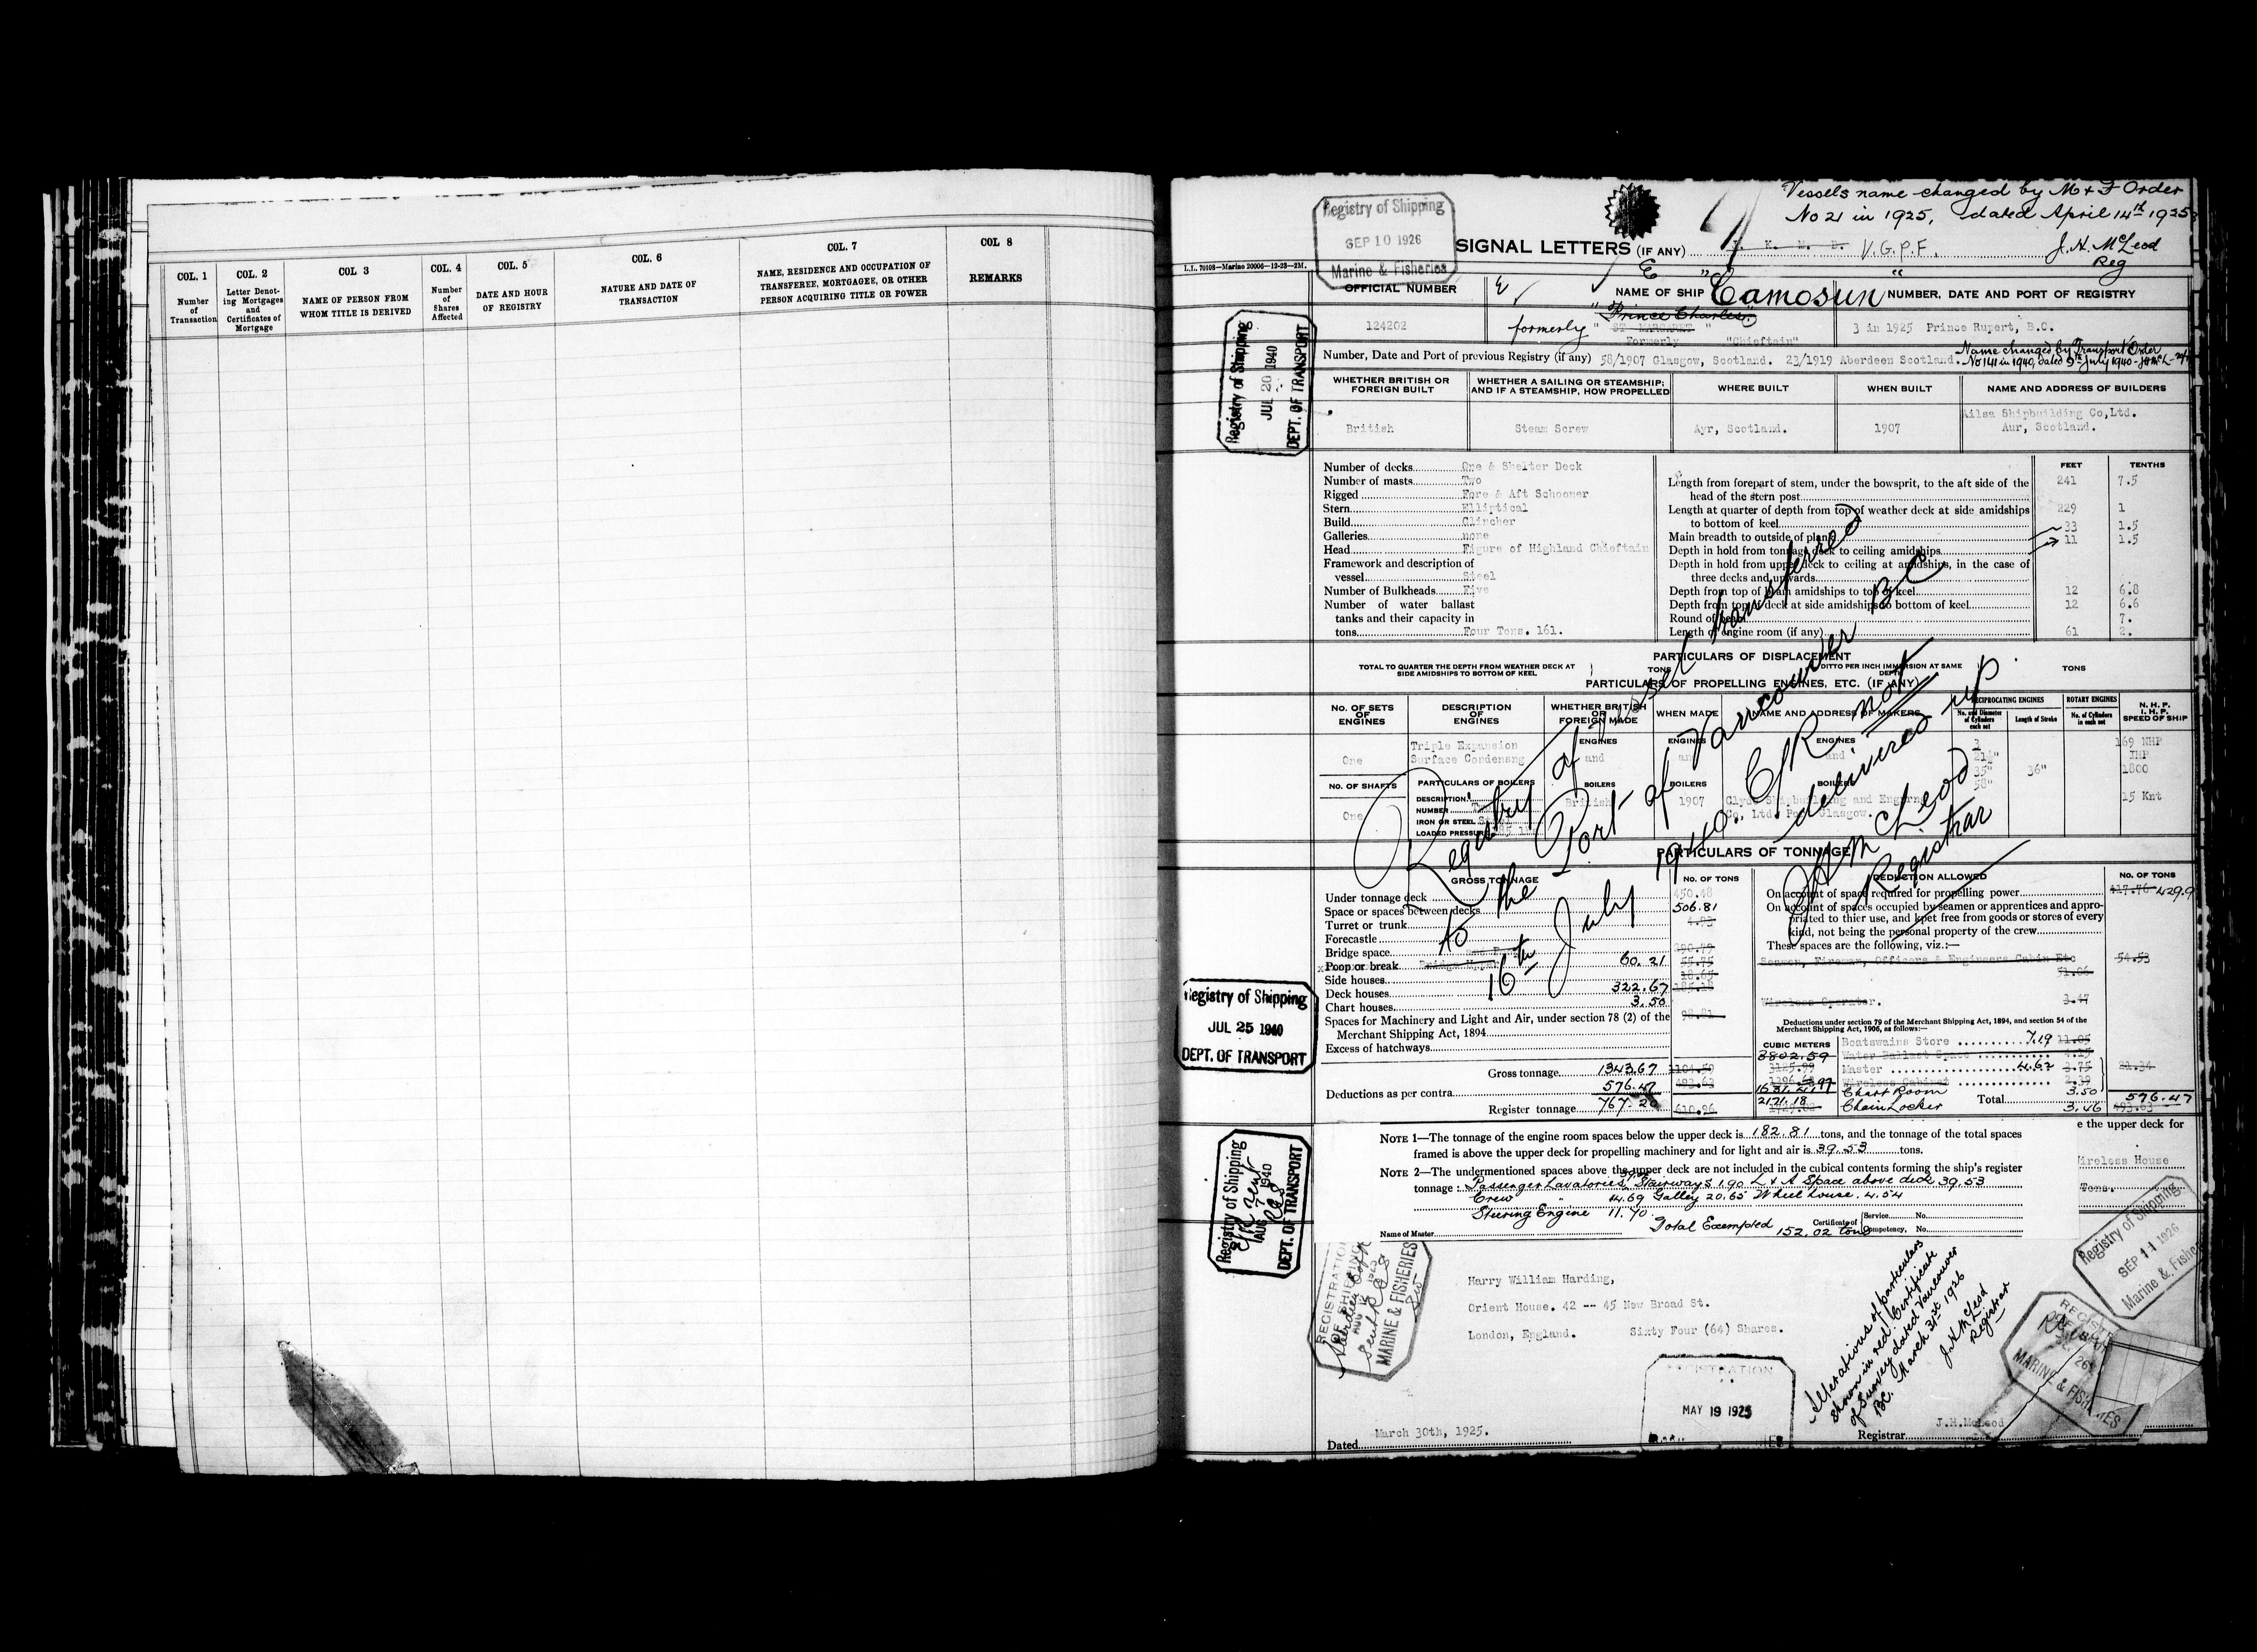 COL. 1
Number
of
Transaction
COL. 2
Letter Denot-
ing Mortgages
and
Certificates of
Mortgage
COL. 3
NAME OF PERSON FROM
WHOM TITLE IS DERIVED
COL. 4
Number
of
Shares
Affected
COL. 5
DATE AND HOUR
OF REGISTRY
COL. 6
NATURE AND DATE OF
TRANSACTION
COL. 7
NAME, RESIDENCE AND OCCUPATION OF
TRANSFEREE, MORTGAGES, OR OTHER
PERSON ACQUIRING TITLE OR POWER
COL 8
REMARKS
Vessels name changed by M & F Order
No 21 in 1925, dated April 14th 1925
J. H. McLeod
Reg
Registry of Shipping
SEP 10 1926
Marine & Fisheries
SIGNAL LETTERS (IF ANY) V.G.P.F.
L.L. 70108—Marine 20006—12-28—2M.
OFFICIAL NUMBER
NAME OF SHIP "Camosun"
NUMBER, DATE AND PORT OF REGISTRY
124202
formerly "Prince Charles"
"ST MARGARET"
Formerly "Chieftain"
3 in 1925 Prince Rupert, B.C.
Number, Date and Port of previous Registry (if any) 58/1907 Glasgow, Scotland. 23/1919 Aberdeen Scotland.
Name changed by Transport Order
No 141 in 1940, dated 9th July 1940
Registry of Shipping
JUL 20 1940
DEPT. OF TRANSPORT
WHETHER BRITISH OR
FOREIGN BUILT
WHETHER A SAILING OR STEAMSHIP;
AND IF A STEAMSHIP, HOW PROPELLED
WHERE BUILT
WHEN BUILT
NAME AND ADDRESS OF BUILDERS
British
Steam Screw
Ayr, Scotland.
1907
Ailsa Shipbuilding Co,Ltd.
Aur, Scotland.
Number of decks One & Shelter Deck
Number of masts Two
Rigged Fore & Aft Schooner
Stern Elliptical
Build Clincher
Galleries none
Head Figure of Highland Chieftain
Framework and description of
vessel Steel
Number of Bulkheads Five
Number of water ballast
tanks and their capacity in
tons Four Tons. 161.
FEET TENTHS
Length from forepart of stem, under the bowsprit, to the aft side of the
head of the stern post 241 7.5
Length at quarter of depth from top of weather deck at side amidships
to bottom of keel 229 1
Main breadth to outside of plank 33 1.5
Depth in hold from tonnage deck to ceiling amidships 11 1.5
Depth in hold from upper deck to ceiling at amidships, in the case of
three decks and upwards
Depth from top of beam amidships to top of keel 12 6.8
Depth from top of deck at side amidships to bottom of keel 12 6.6
Round of beam 7.
Length of engine room (if any) 61 2.
PARTICULARS OF DISPLACEMENT
TOTAL TO QUARTER THE DEPTH FROM WEATHER DECK AT
SIDE AMIDSHIPS TO BOTTOM OF KEEL
TONS
DITTO PER INCH IMMERSION AT SAME
DEPTH
TONS
PARTICULARS OF PROPELLING ENGINES, ETC. (IF ANY)
No. OF SETS
OF
ENGINES
DESCRIPTION
OF
ENGINES
WHETHER BRITISH
OR
FOREIGN MADE
WHEN MADE
NAME AND ADDRESS OF MAKERS
RECIPROCATING ENGINES
No. and Diameter
of Cylinders
each set
Length of Stroke
ROTARY ENGINES
No. of Cylinders
in each set
N. H. P.
I. H. P.
SPEED OF SHIP
One
Triple Expansion
Surface Cordensng
ENGINES
and
BOILERS
British
1907
Clyde Shipbuilding and Engerng
Co, Ltd Port Glasgow.
3
21½"
35"
58"
36"
169 NHP
IHP
1800
15 Knt
No. OF SHAFTS
One
PARTICULARS OF BOILERS
DESCRIPTION
NUMBER
IRON OR STEEL
LOADED PRESSURE
Registry of vessel transferred
to the Port of Vancouver B C
16th July 1940. C/R not
delivered up
J H McLeod
Registrar
PARTICULARS OF TONNAGE
GROSS TONNAGE
No. OF TONS
Under tonnage deck 450.48
Space or spaces between decks 506.81
Turret or trunk
Forecastle
Bridge space
Poop or break 60.21
Side houses
Deck houses 322.67
Chart houses 3.50
Spaces for Machinery and Light and Air, under section 78 (2) of the
Merchant Shipping Act, 1894
Excess of hatchways
Gross tonnage 1343.67
Deductions as per contra 576.47
Register tonnage 767.20 610.96
DEDUCTION ALLOWED
No. OF TONS
On account of space required for propelling power 417.76 429.9
On account of spaces occupied by seamen or apprentices and appro-
priated to thier use, and kpet free from goods or stores of every
kind, not being the personal property of the crew
These spaces are the following, viz.:—
Seamen, Fireman, Officers & Engineers Cabin Etc 54.53
Wireless Operator. 3.47
Deductions under section 79 of the Merchant Shipping Act, 1894, and section 54 of the
Merchant Shipping Act, 1906, as follows:—
CUBIC METERS
3802.59
2171.18
Boatswains Store 7.19 11.05
Water Ballast Space 4.15
Master 4.62 3.75
Wireless Cabinet
Chart Room 3.50
Chain Locker 3.46
21.34
Total 576.47
Registry of Shipping
JUL 25 1940
DEPT. OF TRANSPORT
NOTE 1—The tonnage of the engine room spaces below the upper deck is 182.81 tons, and the tonnage of the total spaces
framed is above the upper deck for propelling machinery and for light and air is 39.53 tons.
NOTE 2—The undermentioned spaces above the upper deck are not included in the cubical contents forming the ship's register
tonnage: Passenger Lavatories, Stairways 1.90 L & A Space above deck 39.53
Crew " 14.69 Galley 20.65 Wheel house. 4.54
Steering Engine 11.70. Total Exempted 152.02 tons
Name of Master
Certificate of
Service, No.
Competency, No.
e the upper deck for
Wireless House
Tons.
Registry of Shipping
AUG 7 1940
DEPT. OF TRANSPORT
Registry of Shipping
SEP 11 1926
Marine & Fisheries
REGISTRATION
OF SHIPPING
MARINE & FISHERIES
Harry William Harding,
Orient House. 42 -- 45 New Broad St.
London, England. Sixty Four (64) Shares.
Alterations of particulars
shown in red. Certificate
of Survey dated Vancouver
BC. March 31st 1926
J. H McLeod
Registrar
MARINE & FISHERIES
REGISTRATION
MAY 19 1925
Dated March 30th, 1925.
J.H.McLeod
Registrar